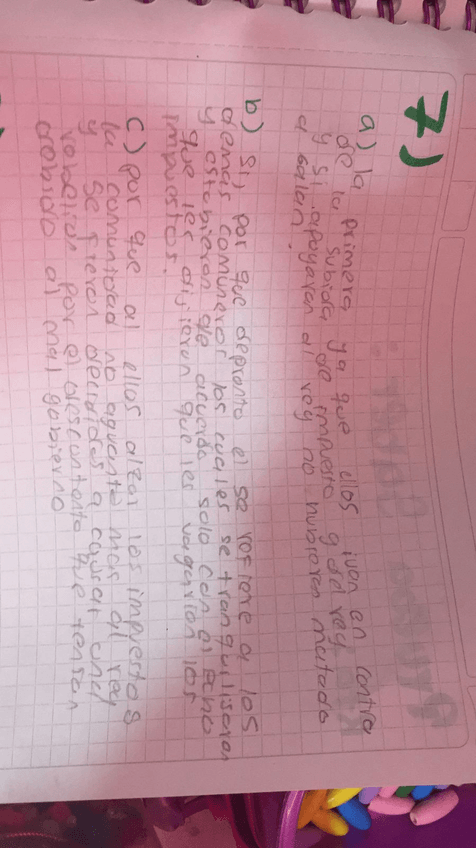 7)
a) la primera ya que ellos ivan en contra
de la subida de impuesto y del rey
y si apoyaran al rey no hubieren matado
a Galan.
b) Si, por que depronto el se refiere a los
demas comuneros los cuales se tranquilisaron
y estubieron de acuerdo solo con el echo
que les dijieron que les vagarian los
impuestos.
c) por que al ellos alzar los impuestos
la comunidad no aguanto mas al rey
y se fueron decididos a causar una
rebelion por el descontento que tenian
debido al mal gobierno